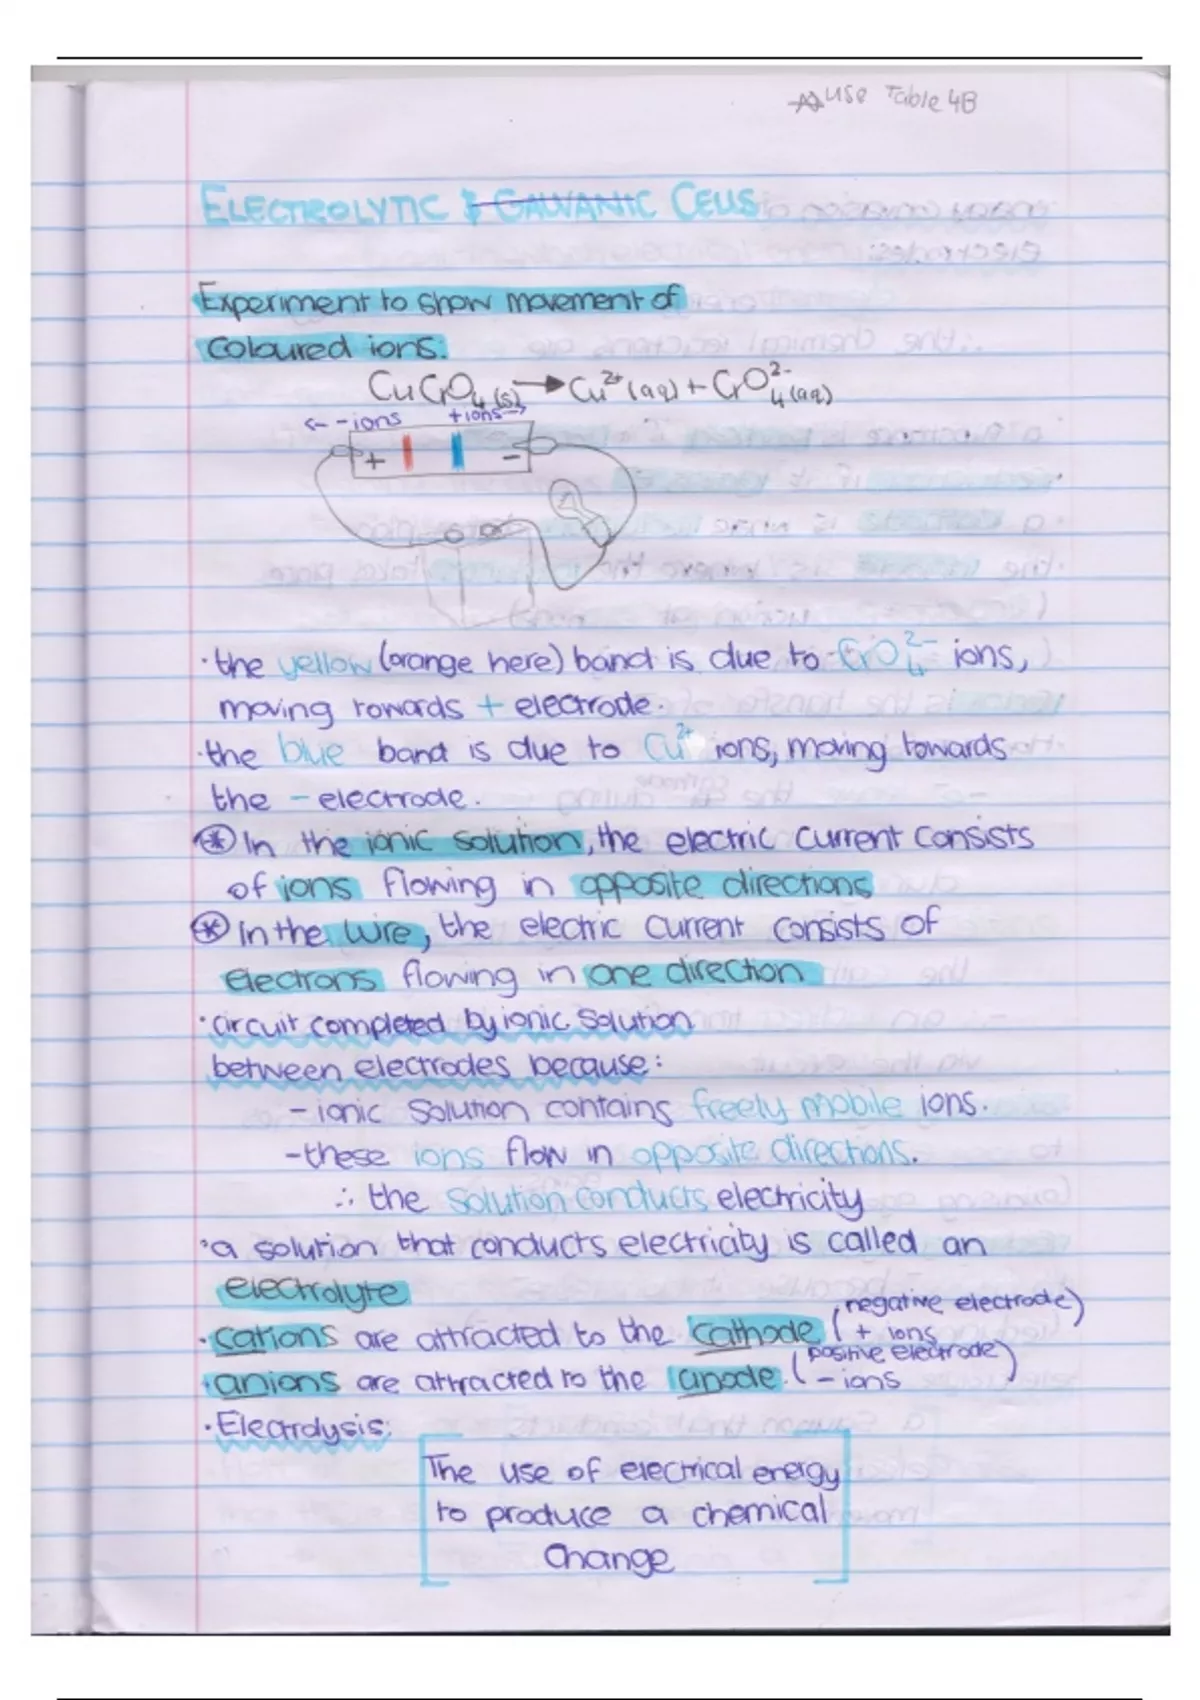 ☆ use Table 4B
ELECTROLYTIC & GALVANIC CELLS
Experiment to show movement of
coloured ions:
CuCrO₄(s) → Cu²⁺(aq) + CrO₄²⁻(aq)
<- -ions +ions ->
+ -
· the yellow (orange here) band is due to CrO₄²⁻ ions,
moving towards + electrode.
· the blue band is due to Cu²⁺ ions, moving towards
the - electrode.
⊛ In the ionic solution, the electric current consists
of ions flowing in opposite directions
⊛ In the wire, the electric current consists of
electrons flowing in one direction
· circuit completed by ionic solution
between electrodes because:
- ionic solution contains freely mobile ions.
- these ions flow in opposite directions.
∴ the solution conducts electricity
· a solution that conducts electricity is called an
electrolyte
· cations are attracted to the cathode (negative electrode)
+ ions
· anions are attracted to the anode. (positive electrode)
- ions
· Electrolysis:
The use of electrical energy
to produce a chemical
change